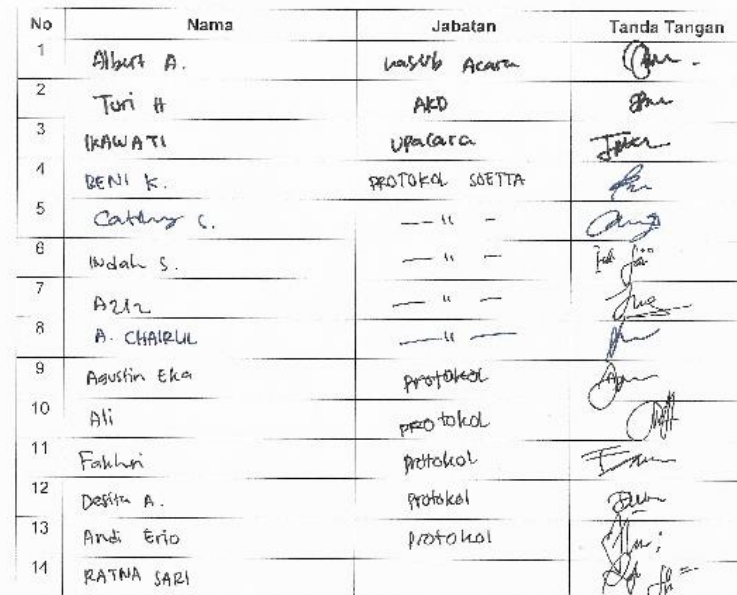 No Nama Jabatan Tanda Tangan
1 Albert A. Kasub Acara
2 Turi H AKD
3 IKAWATI Upacara
4 BENI K. PROTOKOL SOETTA
5 Cathy S. — " —
6 Indah S. — " —
7 Aziz — " —
8 A. CHAIRUL — " —
9 Agustin Eka Protokol
10 Ali PROTOKOL
11 Fakhri Protokol
12 Desita A. Protokol
13 Andi Erio Protokol
14 RATNA SARI